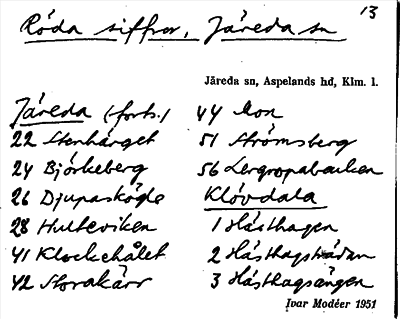 13
Röda siffror. Järeda sn
Järeda sn, Aspelands hd, Klm. l.
Järeda (forts.)
22 Stenhärget
24 Björkeberg
26 Djupaskögle
28 Hulteviken
41 Klockehålet
42 Storakärr
44 Mon
51 Strömsberg
56 Lergropabacken
Klövdala
1 Hästhagen
2 Hästhagstrådan
3 Hästhagsängen
Ivar Modéer 1951